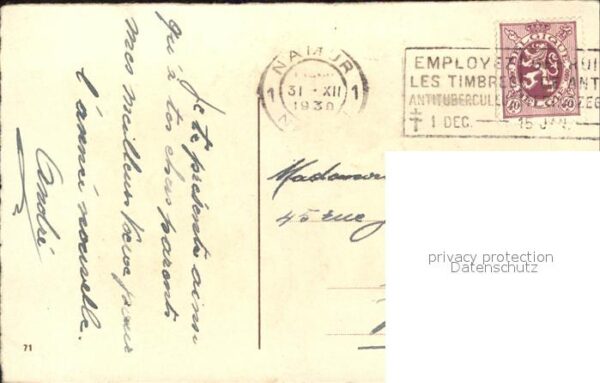 Je te présente ainsi
qu'à tes chers parents
mes meilleurs vœux pour
l'année nouvelle.
André
71
NAMUR
1 31-XII 1
1930
EMPLOYEZ
LES TIMBRES ANTI
ANTITUBERCULE
1 DEC. — 15 JAN.
BELGIQUE
40 40
45 rue
privacy protection
Datenschutz